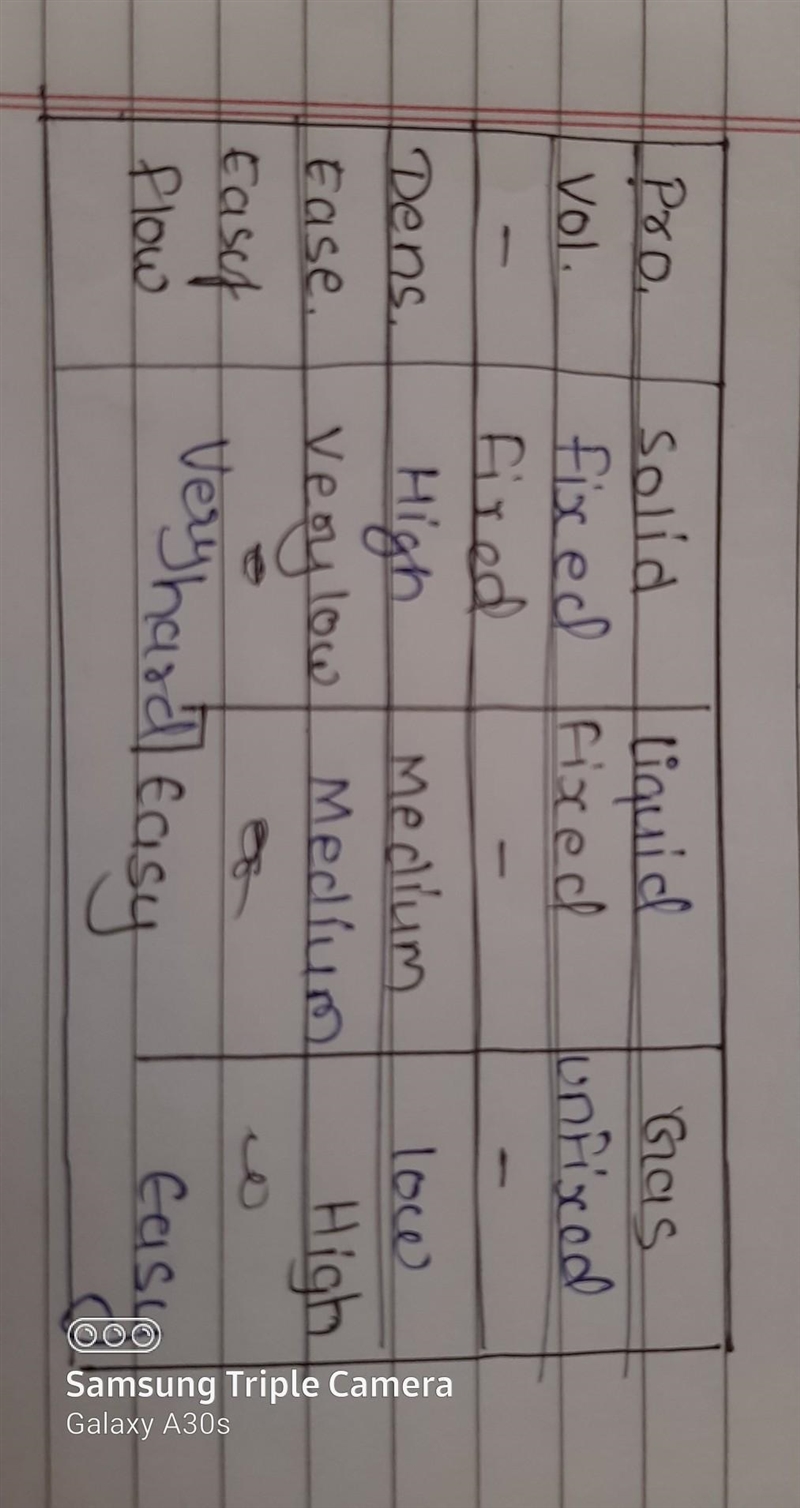 Pro. Solid liquid Gas
Vol. fixed fixed unfixed
- fixed - -
Dens. High Medium low
Ease. Very low Medium High
Ease of
flow Very hard Easy Easy
Samsung Triple Camera
Galaxy A30s